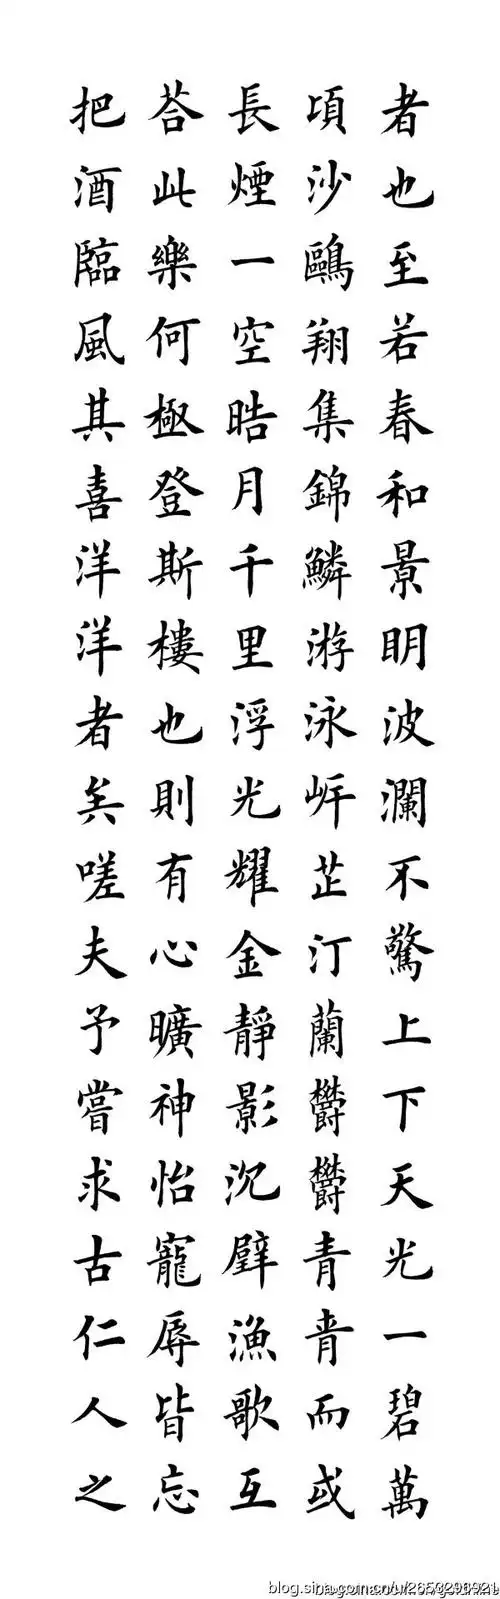 者也至若春和景明波瀾不驚上下天光一碧萬
頃沙鷗翔集錦鱗游泳岸芷汀蘭鬱鬱青青而或
長煙一空晧月千里浮光耀金靜影沉璧漁歌互
荅此樂何極登斯樓也則有心曠神怡寵辱皆忘
把酒臨風其喜洋洋者矣嗟夫予嘗求古仁人之
blog.sina.com.cn/u/2653296921